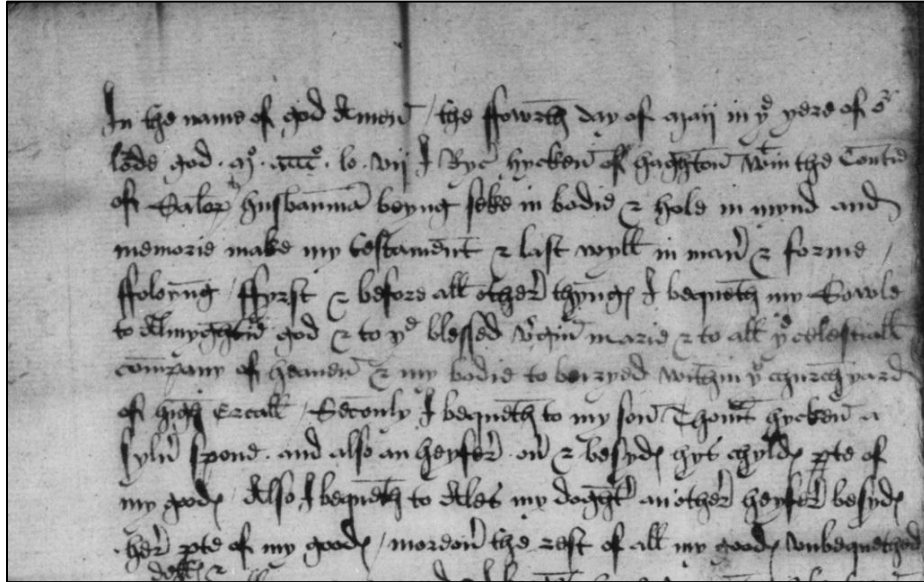 In the name of god Amen / the ffowrth day of maii in ye yere of or
lorde god . mo . ccccco . lvii I Ryc hycken of haghton wtin the Contie
of Salop husbanma beyng seke in bodie & hole in mynd and
memorie make my testament & last wyll in maner & forme /
ffoloyng / ffyrst & before all other thynges I bequeth my Sowle
to Almyghtie god & to ye blessed virgin marie & to all ye celestiall
company of heaven & my bodie to be buryed within ye church yard
of high Ercall / Seconly I bequeth to my son Thomas hycken a
sylver spone . and also an heyfer over & besydes hys chyldes parte of
my goodes Also I bequeth to Ales my doghter an other heyfer besydes
her parte of my goodes / moreover the rest of all my goodes unbequethed
dettes &